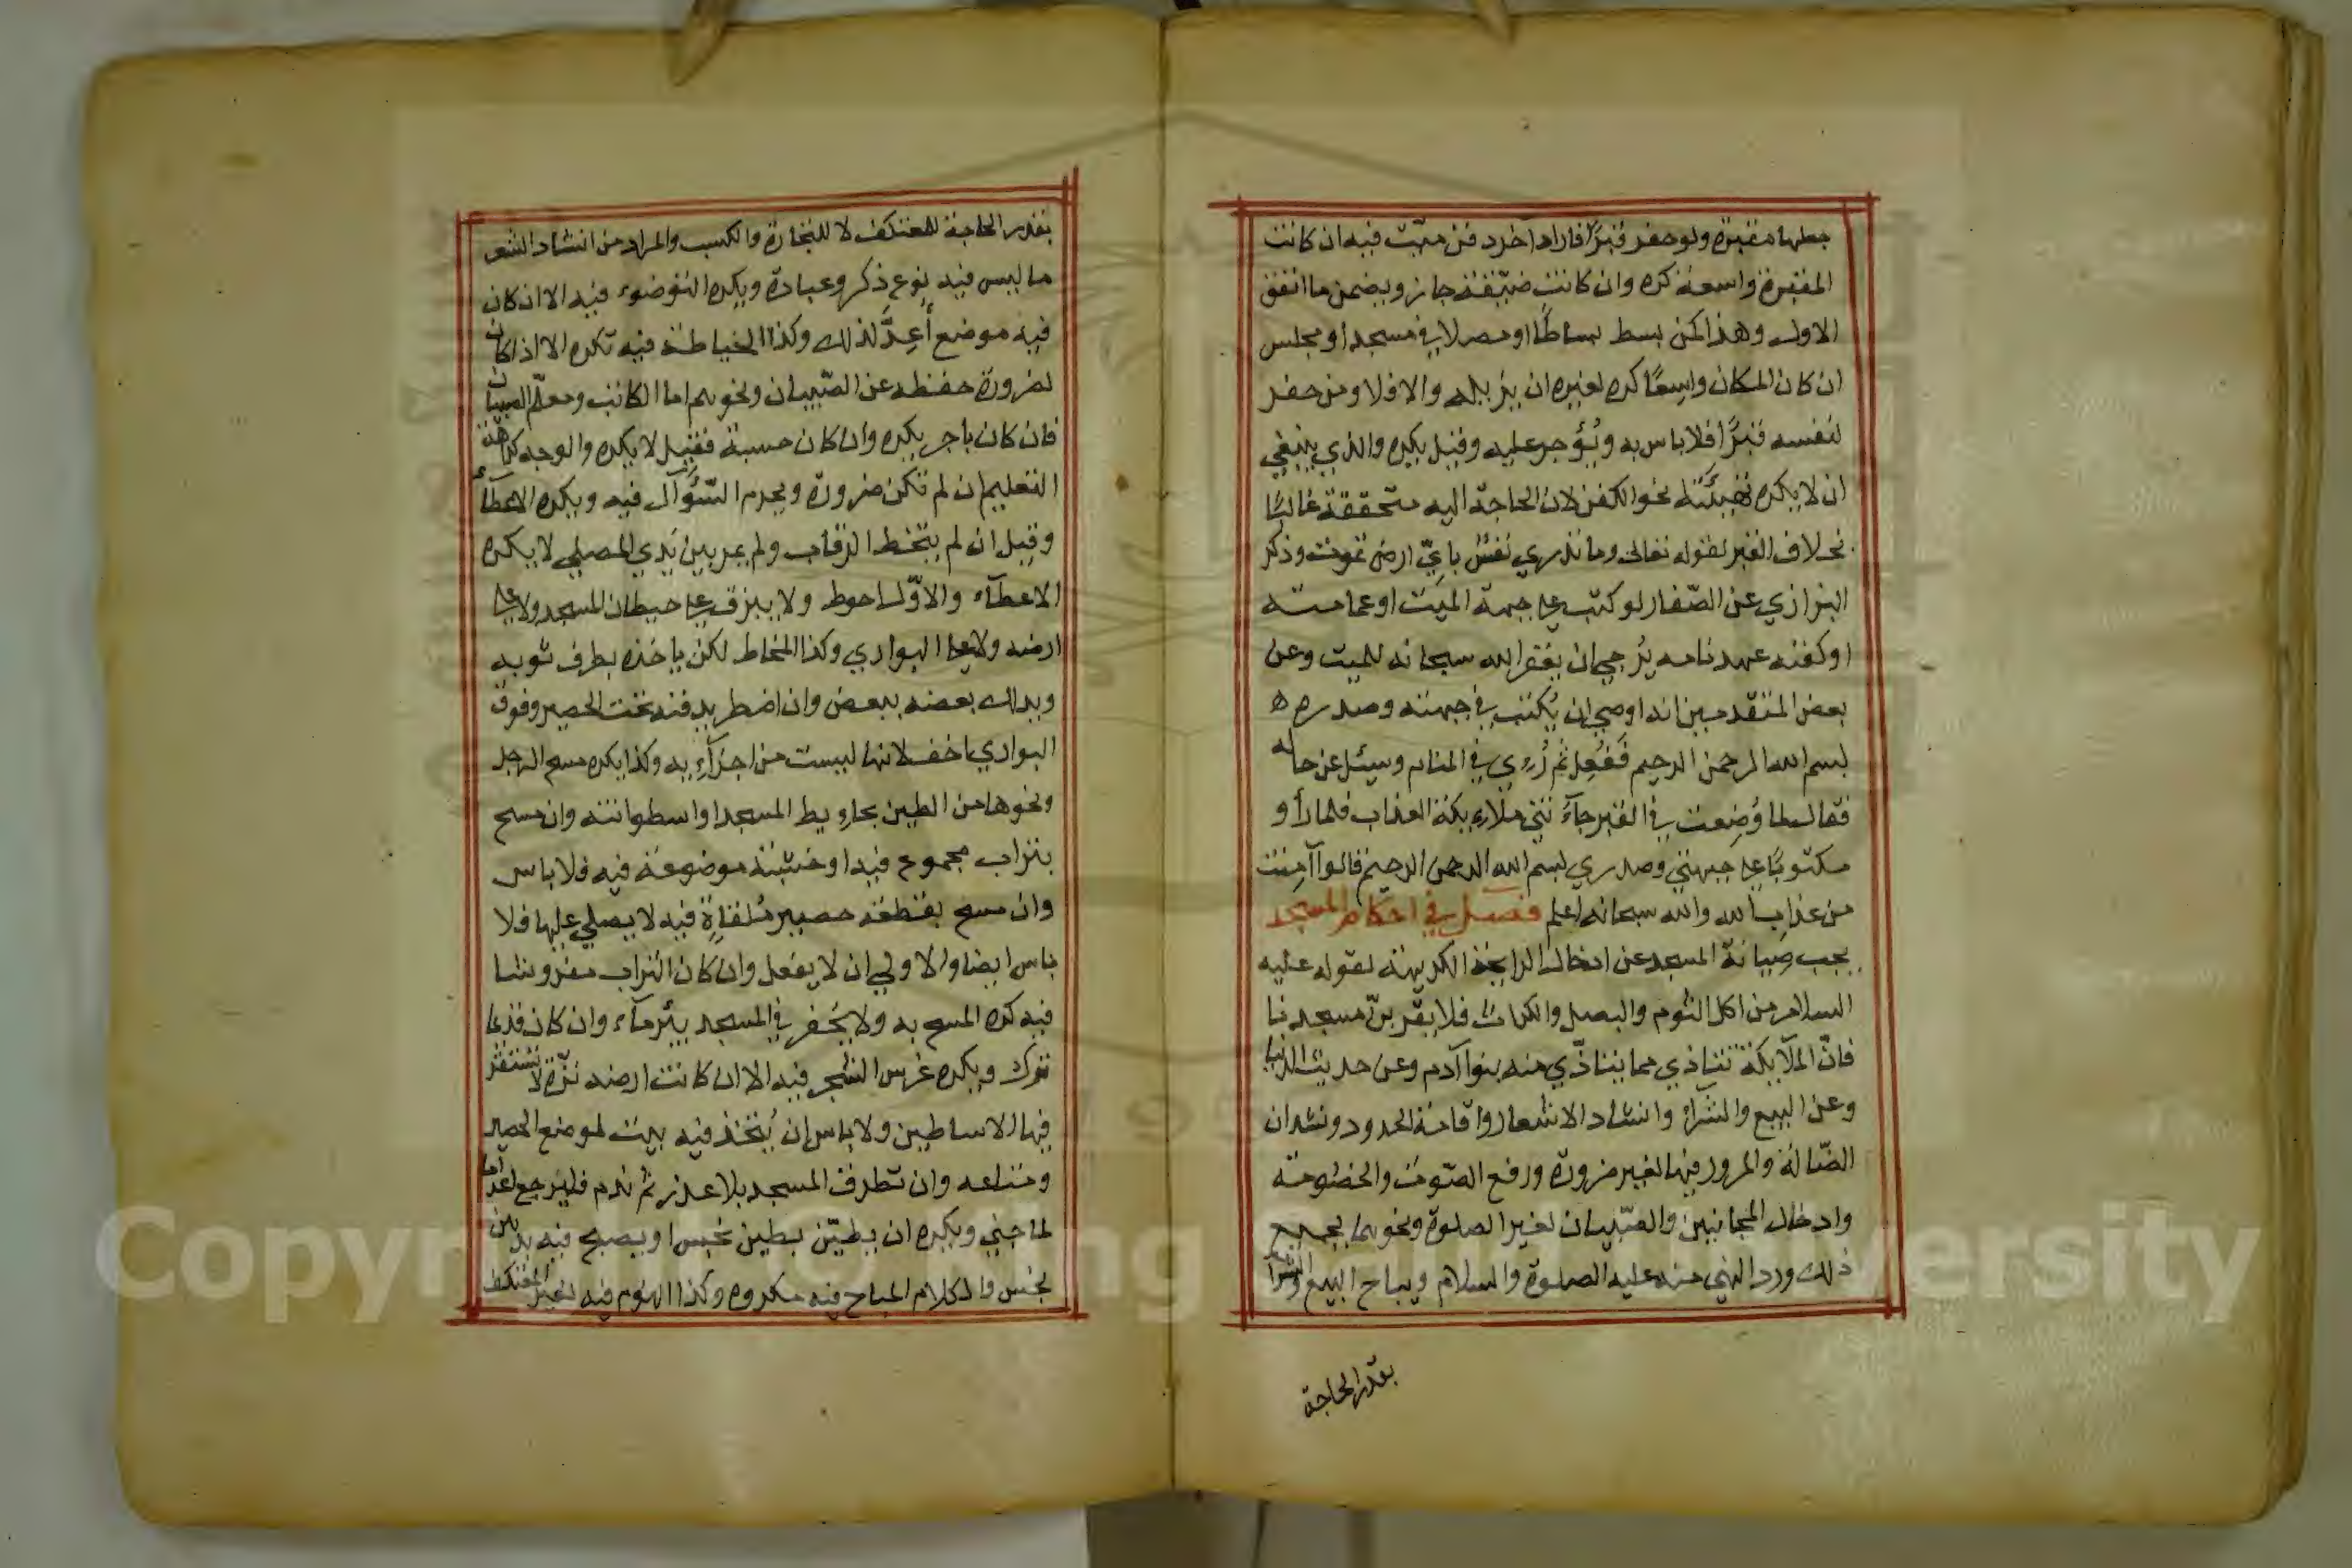 جعلها مقبرة ولو حفر قبرًا فاراد آخر دفن ميّت فيه ان كانت
المقبرة واسعة كره وان كانت ضيّقة جاز ويضمن ما انفق
الاول وهذا كمن بسط بساطًا او مصلا في مسجد او مجلس
ان كان المكان واسِعًا كره لغيره ان يزيله والا فلا ومن حفر
لنفسه قبرًا فلا باس به ويُؤجر عليه وقيل يكره والذي ينبغي
ان لا يكره تهيئَته نحو الكفن لان الحاجة اليه متحققة غالبًا
بخلاف القبر لقوله تعالى وما تدري نفسٌ بايّ ارض تموت وذكر
البزازي عن الصّفار لو كتب على جبهة الميّت او عمامته
او كفنه عهدنامه يُرجى ان يغفر الله سبحانه للميت وعن
بعض المتقدمين انه اوصى ان يُكتب في جبهته وصدره
بسم الله الرحمن الرحيم فَفُعِل ثم رُءِي في المنام وسيُل عن حاله
فقال لما وُضِعت في القبر جآءَتني ملاءِيكة العذاب فلما رأو
مكتوبًا على جبهتي وصدري بسم الله الرحمن الرحيم قالوا آمِنت
من عذاب الله والله سبحانه اعلم فصل في احكام المسجد
يجب صِيانة المسجد عن ادخال الرايحة الكريهة لقوله عليه
السلام من اكل الثوم والبصل والكراث فلا يقربنّ مسجدنا
فانّ الملآيكة تتاذي مما يتاذّي منه بنوا آدم وعن حديث الدنيا
وعن البيع والشراءِ وانشاد الاشعار واقامة الحدود ونشدان
الضّالة والمرور فيها لغير ضرورة ورفع الصّوت والخصُومة
وادخال المجانين والصّبيان لغير الصلوة ونحوهما بجميع
ذلك ورد النهي منه عليه الصلوة والسلام ويباح البيع والشرا
بقدر الحاجة
بقدر الحاجة للمعتكف لا للتجارة والكسب والمراد من انشاد الشعر
ما ليس فيه نوع ذكر وعبادة ويكره التوضوء فيه الا ان كان
فيه موضع أُعِدَّ لذلك وكذا الخياطة فيه تكره الا اذا كان
لضرورة حفظه عن الصّبيان ونحوهم اما الكاتب ومعلّم الصبيان
فان كان باجر يكره وان كان حسبة فقيل لا يكره والوجه كراهة
التعليم ان لم تكن ضرورة ويحرم السّؤآل فيه ويكره الاعطآء
وقيل ان لم يتخط الرقاب ولم يمر بين يَدي المصلي لا يكره
الاعطآء والاوّل احوط ولا يبزق على حيطان المسجد ولا على
ارضه ولا على البواري وكذا المخاط لكن ياخذه بطرف ثوبه
ويدلك بعضه ببعض وان اضطر يدفنه تحت الحصير وفوق
البواري اخف لانها ليست من اجزآءِ به وكذا يكره مسح الرجل
ونحوها من الطين بحاءِيط المسجد او اسطوانته وان مسح
بتراب مجموع فيه او خشبة موضوعة فيه فلا باس
وان مسح بقطعة حصير مُلقاة فيه لا يصلي عليها فلا
باس ايضا والاولى ان لا يفعل وان كان التراب مفروشا
فيه كره المسح به ولا يُحفر في المسجد بيُر مآء وان كان قديما
تترك ويكره غرس الشجر فيه الا ان كانت ارضه نزّة لا تستقر
فيها الاساطين ولا باس ان يُتّخذ فيه بيت لموضع الحصير
ومتاعه وان تطرق المسجد بلا عذر ثم ندم فليرجع اعداما
لما جنى ويكره ان يطيّن بطين نجس او يصبح فيه بدهن
نجس والكلام المباح فيه مكروه وكذا النوم فيه لغير المعتكف